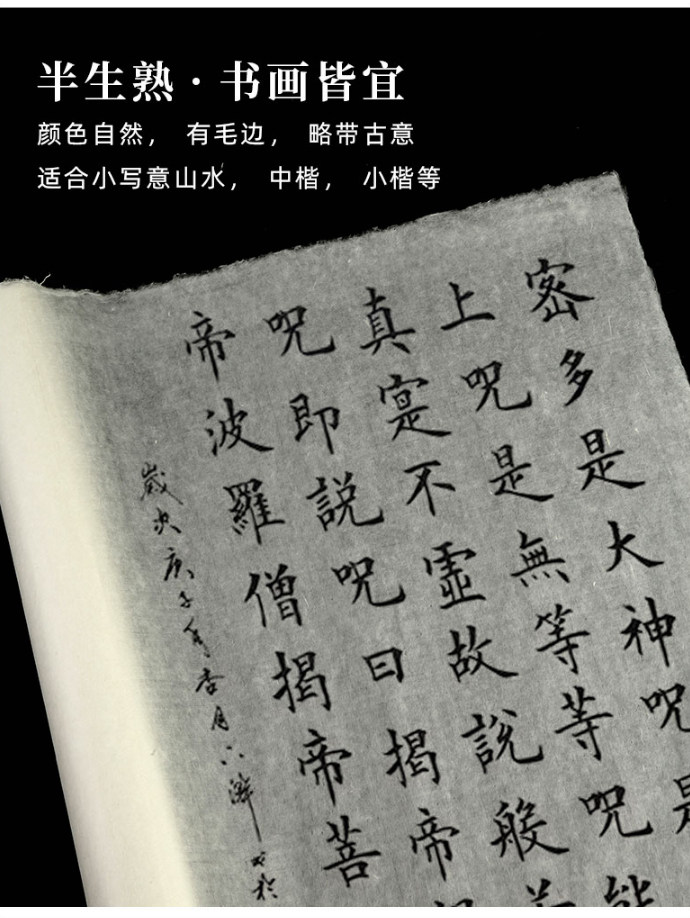 半生熟·书画皆宜
颜色自然， 有毛边， 略带古意
适合小写意山水， 中楷， 小楷等
密多是大神呪是
上呪是無等等呪能
真寔不虛故說般
呪即說呪曰揭帝
帝波羅僧揭帝菩
歲次庚子年杏月